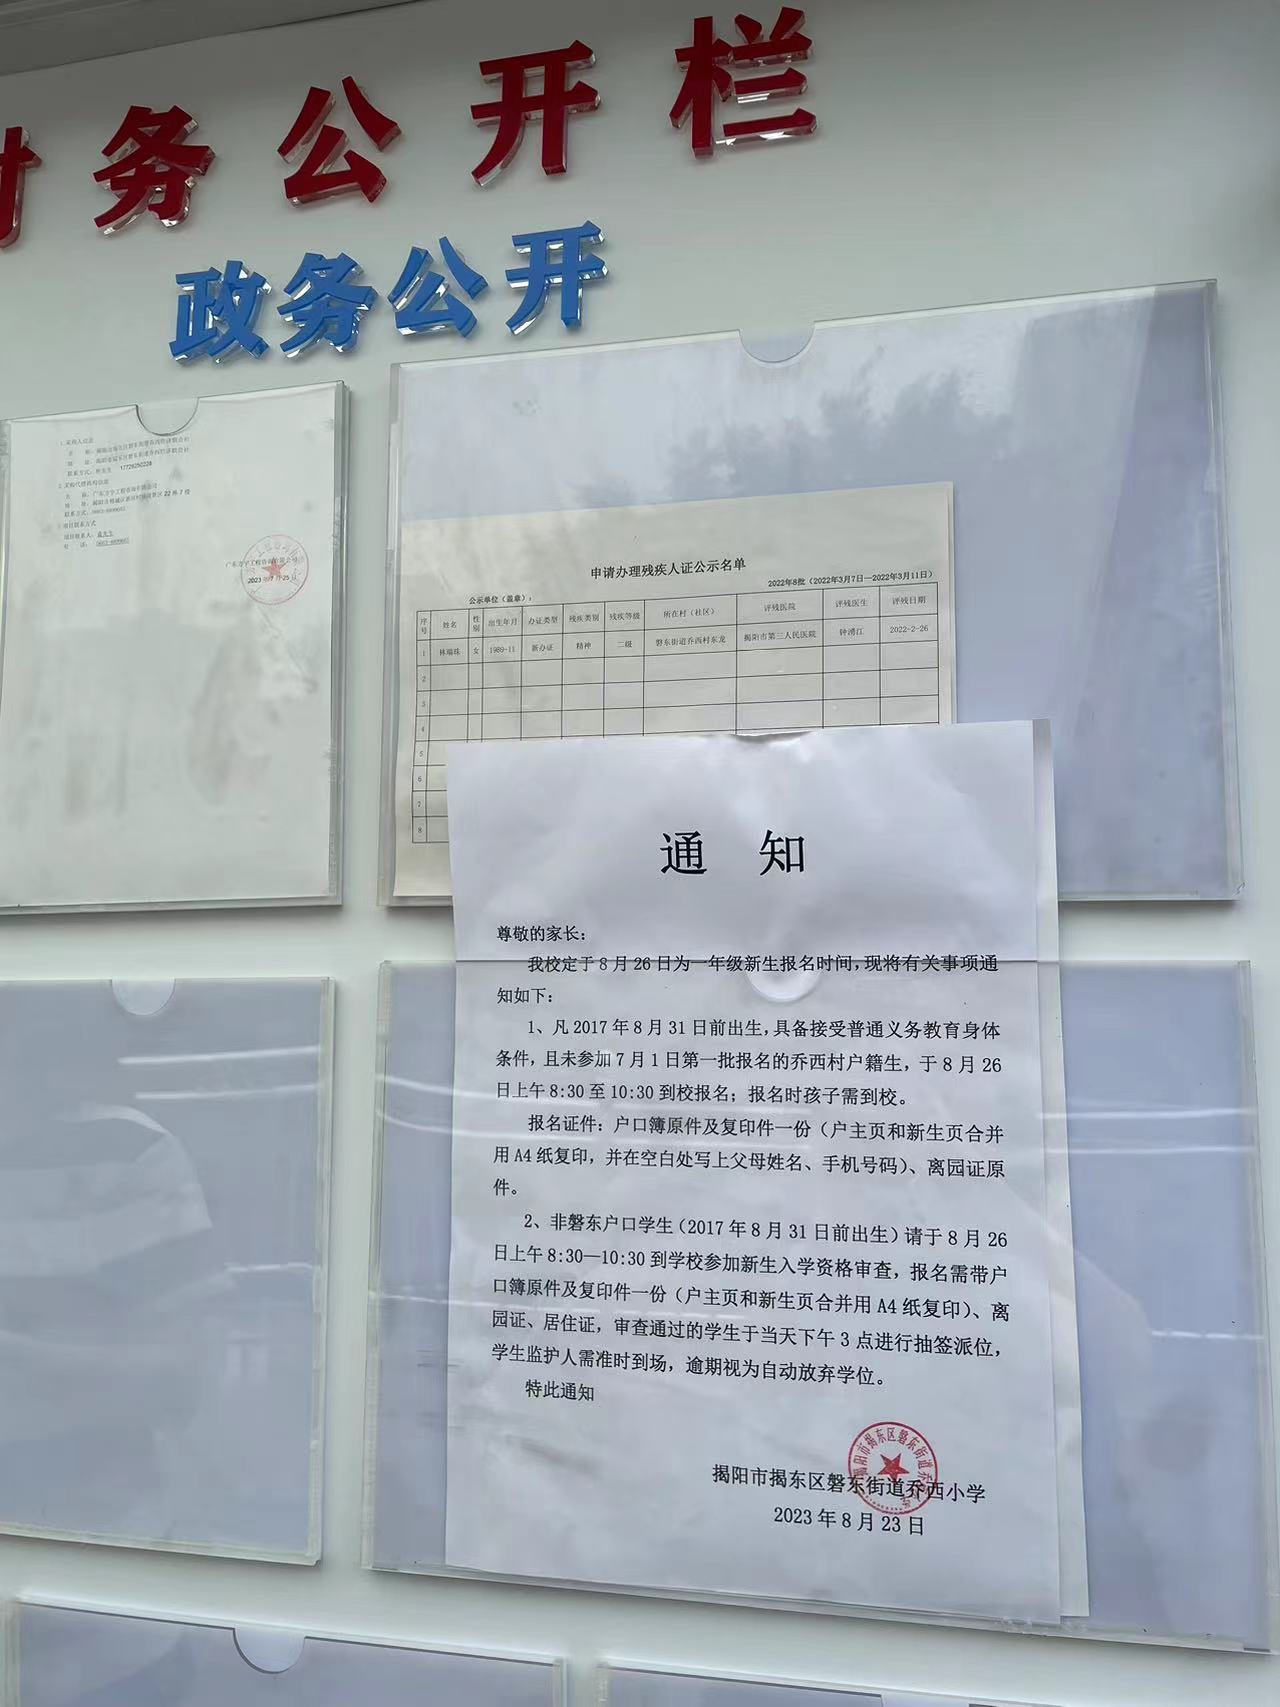 务公开栏
政务公开
1.采购人信息
2.采购代理机构信息
2023年7月25日
申请办理残疾人证公示名单
2022年8批（2022年3月7日—2022年3月11日）
公示单位（盖章）：
序号 姓名 性别 出生年月 办证类型 残疾类别 残疾等级 所在村（社区） 评残医院 评残医生 评残日期
1 林瑞珠 女 1989-11 新办证 精神 二级 磐东街道乔西村东龙 揭阳市第三人民医院 钟湧江 2022-2-26
2
3
4
5
6
7
8
通 知
尊敬的家长：
我校定于8月26日为一年级新生报名时间，现将有关事项通
知如下：
1、凡2017年8月31日前出生，具备接受普通义务教育身体
条件，且未参加7月1日第一批报名的乔西村户籍生，于8月26
日上午8:30至10:30到校报名；报名时孩子需到校。
报名证件：户口簿原件及复印件一份（户主页和新生页合并
用A4纸复印，并在空白处写上父母姓名、手机号码）、离园证原
件。
2、非磐东户口学生（2017年8月31日前出生）请于8月26
日上午8:30—10:30到学校参加新生入学资格审查，报名需带户
口簿原件及复印件一份（户主页和新生页合并用A4纸复印）、离
园证、居住证，审查通过的学生于当天下午3点进行抽签派位，
学生监护人需准时到场，逾期视为自动放弃学位。
特此通知
揭阳市揭东区磐东街道乔西小学
2023年8月23日